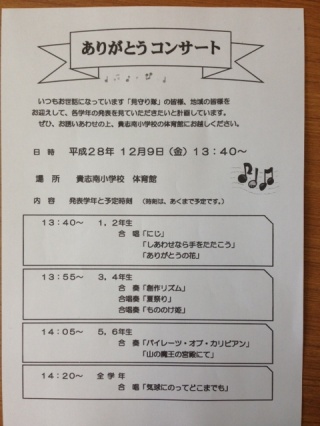 ありがとうコンサート
いつもお世話になっています「見守り隊」の皆様、地域の皆様を
お迎えして、各学年の発表を見ていただきたいと計画しています。
ぜひ、お誘いあわせの上、貴志南小学校の体育館にお越しください。
日 時　平成28年 12月9日(金) 13:40～
場 所　貴志南小学校 体育館
内 容　発表学年と予定時刻　(時刻は、あくまで予定です。)
13:40～　1, 2年生
合 唱「にじ」
「しあわせなら手をたたこう」
「ありがとうの花」
13:55～　3, 4年生
合 奏「創作リズム」
合唱奏「夏祭り」
合唱奏「もののけ姫」
14:05～　5, 6年生
合 奏「パイレーツ・オブ・カリビアン」
「山の魔王の宮殿にて」
14:20～　全 学 年
合 唱「気球にのってどこまでも」